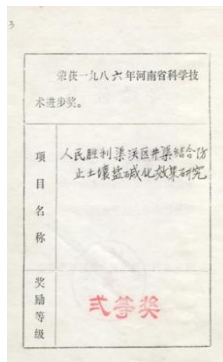 3
荣获一九八六年河南省科学技
术进步奖。
项目名称
人民胜利渠灌区井渠结合防
止土壤盐碱化效果研究
奖励等级
弍等奖